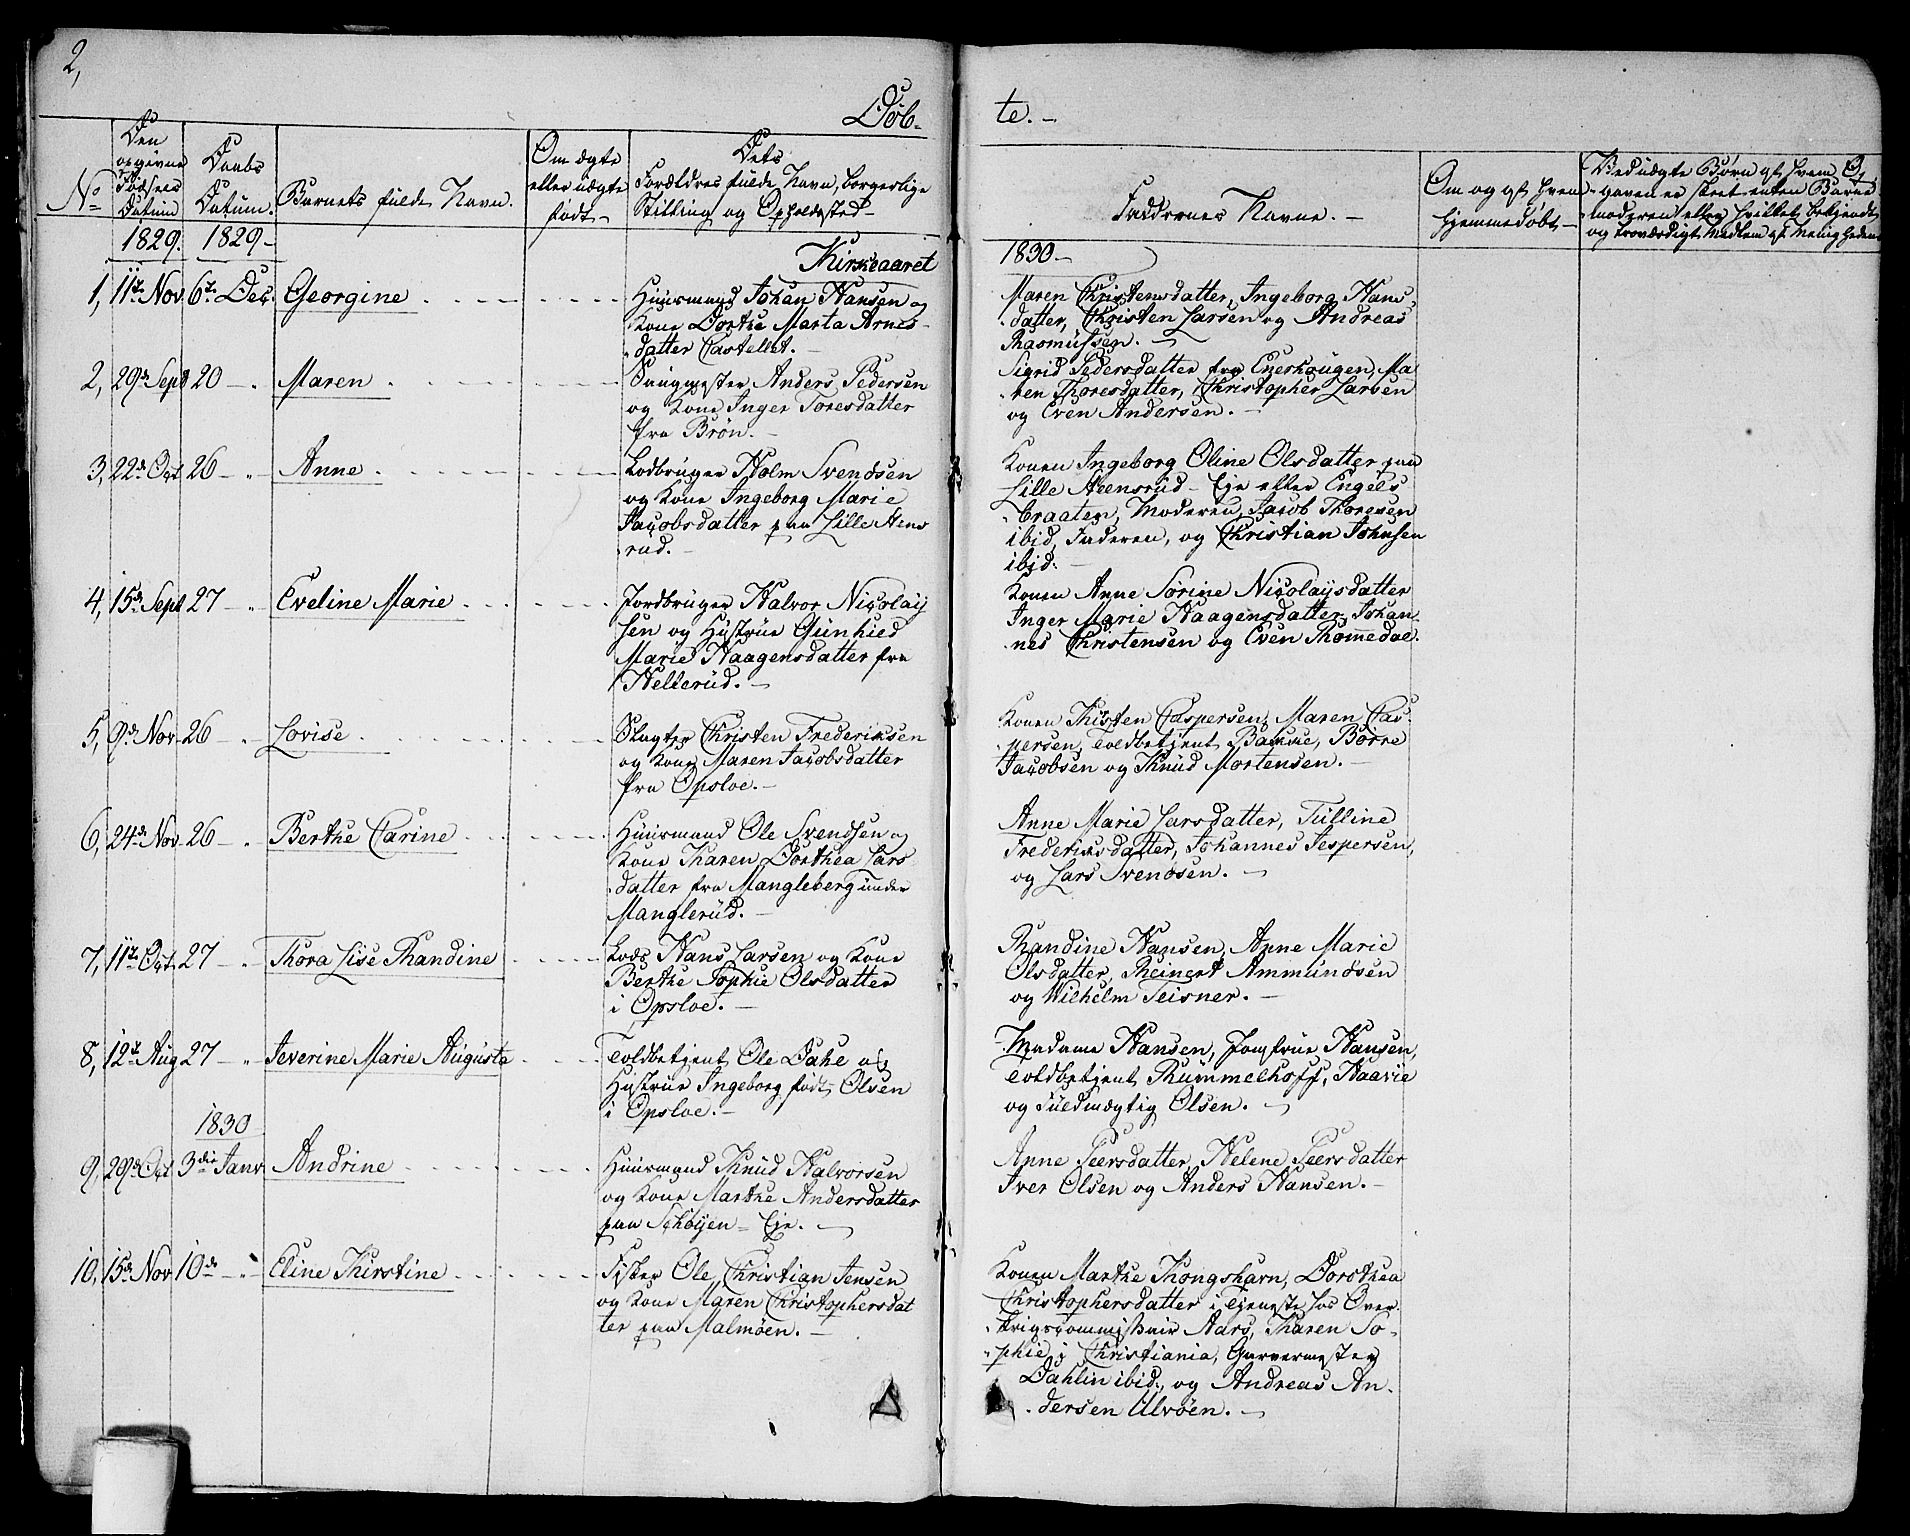 2,
Døb-
te. -
No
Den opgivne Fødsels Datum
Daabs Datum.
Barnets fulde Navn.
Om ægte eller uægte født-
Dets Forældres fulde Navn, borgerlige Stilling og Opholdssted-
Faddernes Navne. -
Om og af hvem hjemmedøbt-
Ved uægte Børn af hvem Opgaven er skeet enten Barnemoderen eller hvilket bekjendt og troværdigt Medlem af Menigheden
1829. 1829-
Kirkeaaret
1830-
1, 11te Nov 6te Dec. Georgine
Huusmand Johan Hansen og
Kone Dorthe Marta Arnes-
datter Castellet. -
Maren Christensdatter, Ingeborg Hans-
datter, Christen Larsen og Andreas
Rasmussen. -
2, 29de Sept 20 - " Maren
Anders Pedersen
og Kone Inger Toresdatter
fra Brøn. -
Sigrid Pedersdatter fra Enerhougen, Ma-
ren Thoresdatter, Christopher Larsen
og Even Andersen. -
3, 22de Oct 26 - " Anne
Lodbruger Holm Svendsen
og Kone Ingeborg Marie
Jacobsdatter paa Lille Aens
rud. -
Konen Ingeborg Oline Olsdatter paa
Lille Aeensrud - Eje efter Engels
braaten, Moderen, Jacob Thoresen
ibid, Faderen, og Christian Johnsen
ibid. -
4, 15de Sept 27 - " Eveline Marie
Jordbruger Halvor Nicolay
sen og Hustrue Gunhied
Marie Haagensdatter fra
Hellerud. -
Konen Anne Sørine Nicolaysdatter
Inger Marie Haagensdatter, Johan-
nes Christensen og Even Thomedal.
5, 9de Nov 26 - " Lovise
Slagter Christen Frederiksen
og Kone Maren Jacobsdatter
fra Opsloe. -
Konen Kisten Caspersen, Maren Cas-
persen, Toldbetjent Børre
Jacobsen og Knud Mortensen. -
6, 24de Nov 26 - " Berthe Carine
Huusmand Ole Svendsen og
Kone Karen Dorthea Lars
datter fra Mangleberg under
Manglerud. -
Anne Marie Larsdatter, Tulline
Frederiksdatter, Johannes Jespersen,
og Lars Svendsen. -
7, 11te Oct 27 - " Thora Lise Randine
Lods Hans Larsen og Kone
Berthe Sophie Olsdatter
i Opsloe. -
Randine Hansen, Anne Marie
Olsdatter, Reinert Ammundsen
og Wilhelm Teisner. -
8, 12te Aug 27 - " Severine Marie Augusta
Toldbetjent Ole Dahe og
Hustrue Ingeborg født Olsen
i Opsloe. -
Madame Hansen, Jomfrue Hansen,
Toldbetjent Rummelhoff, Haavie
og Fuldmægtig Olsen. -
1830
9, 29de Oct 3die Janr Andrine
Huusmand Knud Halvorsen
og Kone Marthe Andersdatter
paa Schøyen - Eje. -
Anne Peersdatter, Helene Peersdatter
Iver Olsen og Anders Hansen. -
10, 15de Nov 10de - " Eline Kirstine
Fisker Ole Christian Jensen
og Kone Maren Christophersdat
ter paa Malmøen. -
Konen Marthe Kongshavn, Dorothea
Christophersdatter i Tjeneste hos Over-
krigscommissair Aars, Karen So-
phie i Christiania, Garvermester
Dahlin ibid, og Andreas An-
dersen Ulvøen. -